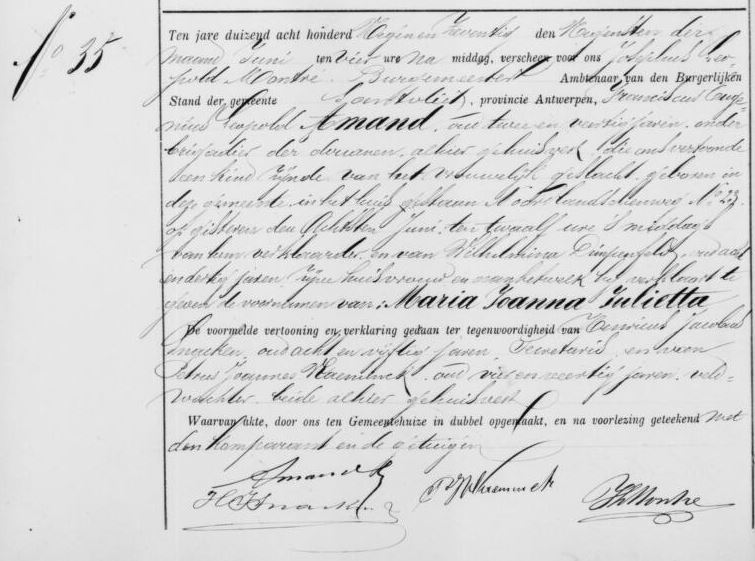 No 35
Ten jare duizend acht honderd Negen en Zeventig den Negensten der
maand Juni ten vier ure na middag, verscheen voor ons Josephus Leo-
pold Montré Burgemeester Ambtenaar van den Burgerlijken
Stand der gemeente Santvliet, provincie Antwerpen, Franciscus
Leopold Amand, oud twee en veertig jaren, onder
brigadier der douanen, alhier gehuisvest, die ons vertoonde
een kind zijnde van het vrouwelijk geslacht, geboren in
deze gemeente in het huis gestaan No 23
of gisteren den Achtsten Juni, ten twaalf ure 's middags
van hem verklaarder, en van Wilhelmina oud acht
en dertig jaren, zijne huisvrouw en aan hetwelk hij verklaart te
geven de voornamen van: Maria Joanna Julietta
De voormelde vertooning en verklaring gedaan ter tegenwoordigheid van Henricus Jacobus
oud acht en vijftig jaren, Secretaris, en van
Petrus Joannes oud vier en veertig jaren, veld-
wachter, beide alhier gehuisvest
Waarvan akte, door ons ten Gemeentehuize in dubbel opgemaakt, en na voorlezing geteekend met
den komparant en de getuigen
Amand